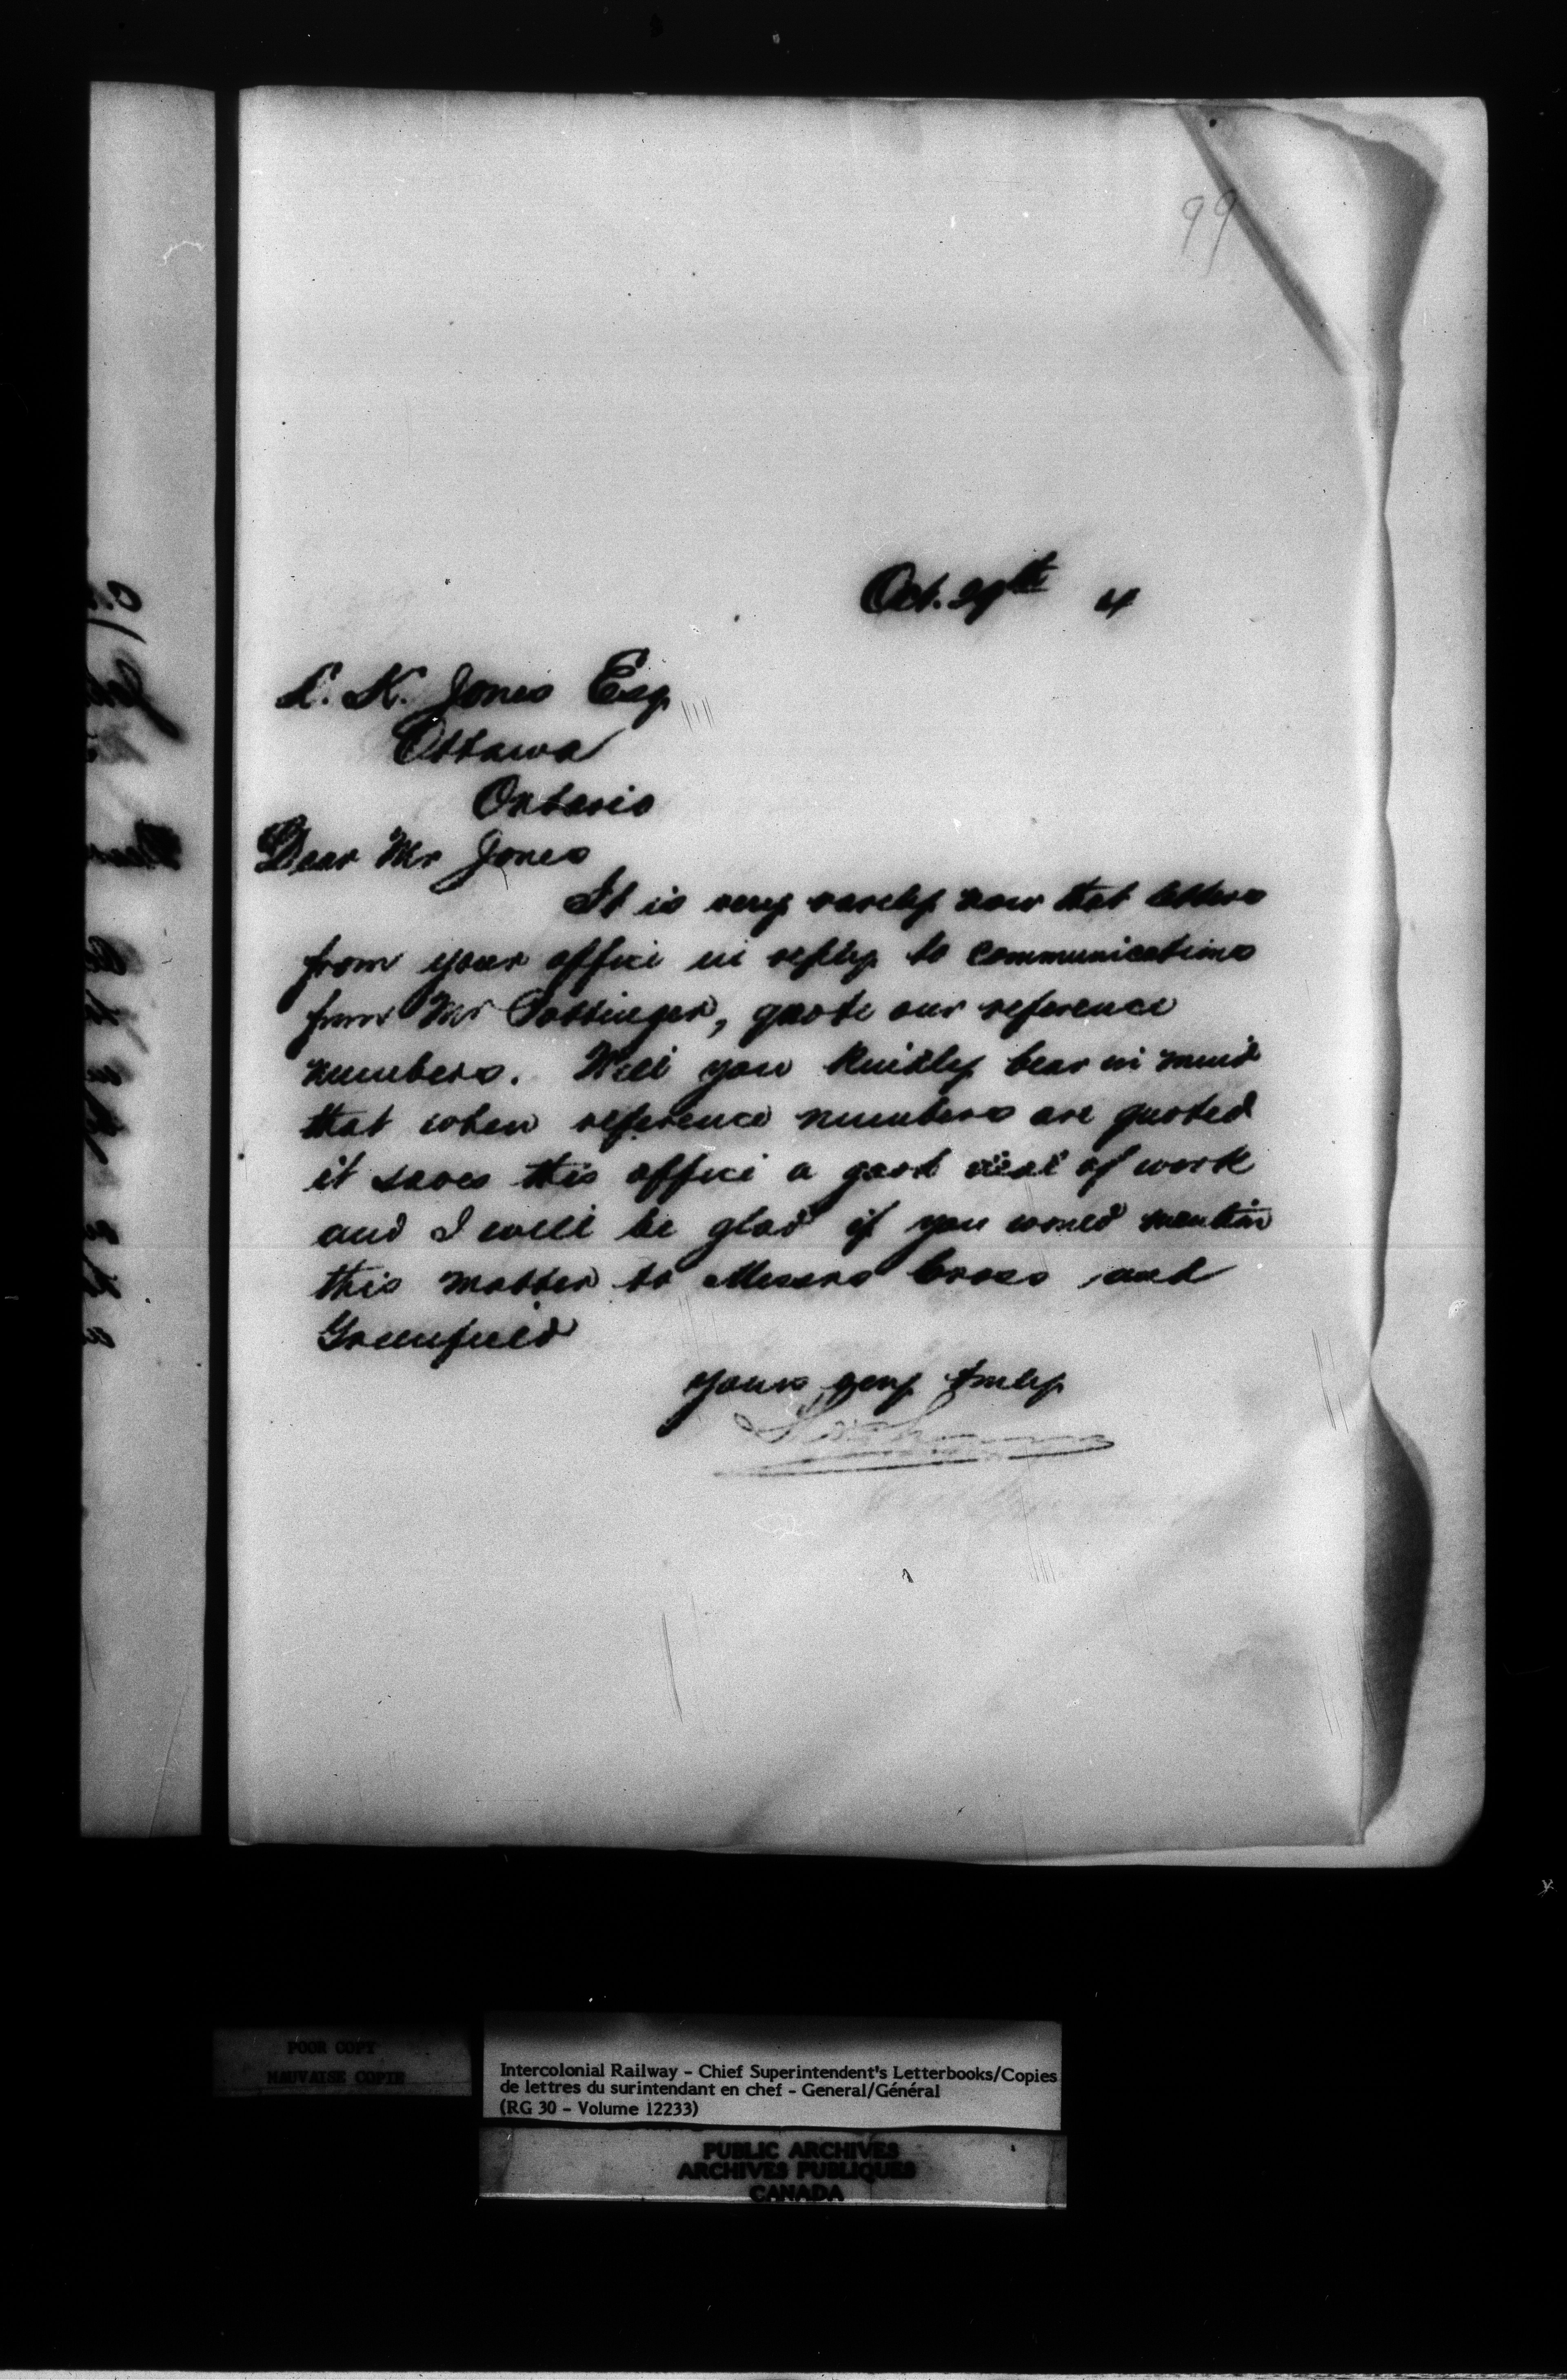 99
Oct. 29th 4
L. K. Jones Esq
Ottawa
Ontario
Dear Mr Jones
It is very rarely now that letters
from your office in reply to communications
from Mr Pottinger, quote our reference
numbers. Will you kindly bear in mind
that when reference numbers are quoted
it saves this office a good deal of work
and I will be glad if you would mention
this matter to Messrs Cross and
Greenfield
Yours very truly
POOR COPY
MAUVAISE COPIE
Intercolonial Railway - Chief Superintendent's Letterbooks/Copies
de lettres du surintendant en chef - General/Général
(RG 30 - Volume 12233)
PUBLIC ARCHIVES
ARCHIVES PUBLIQUES
CANADA